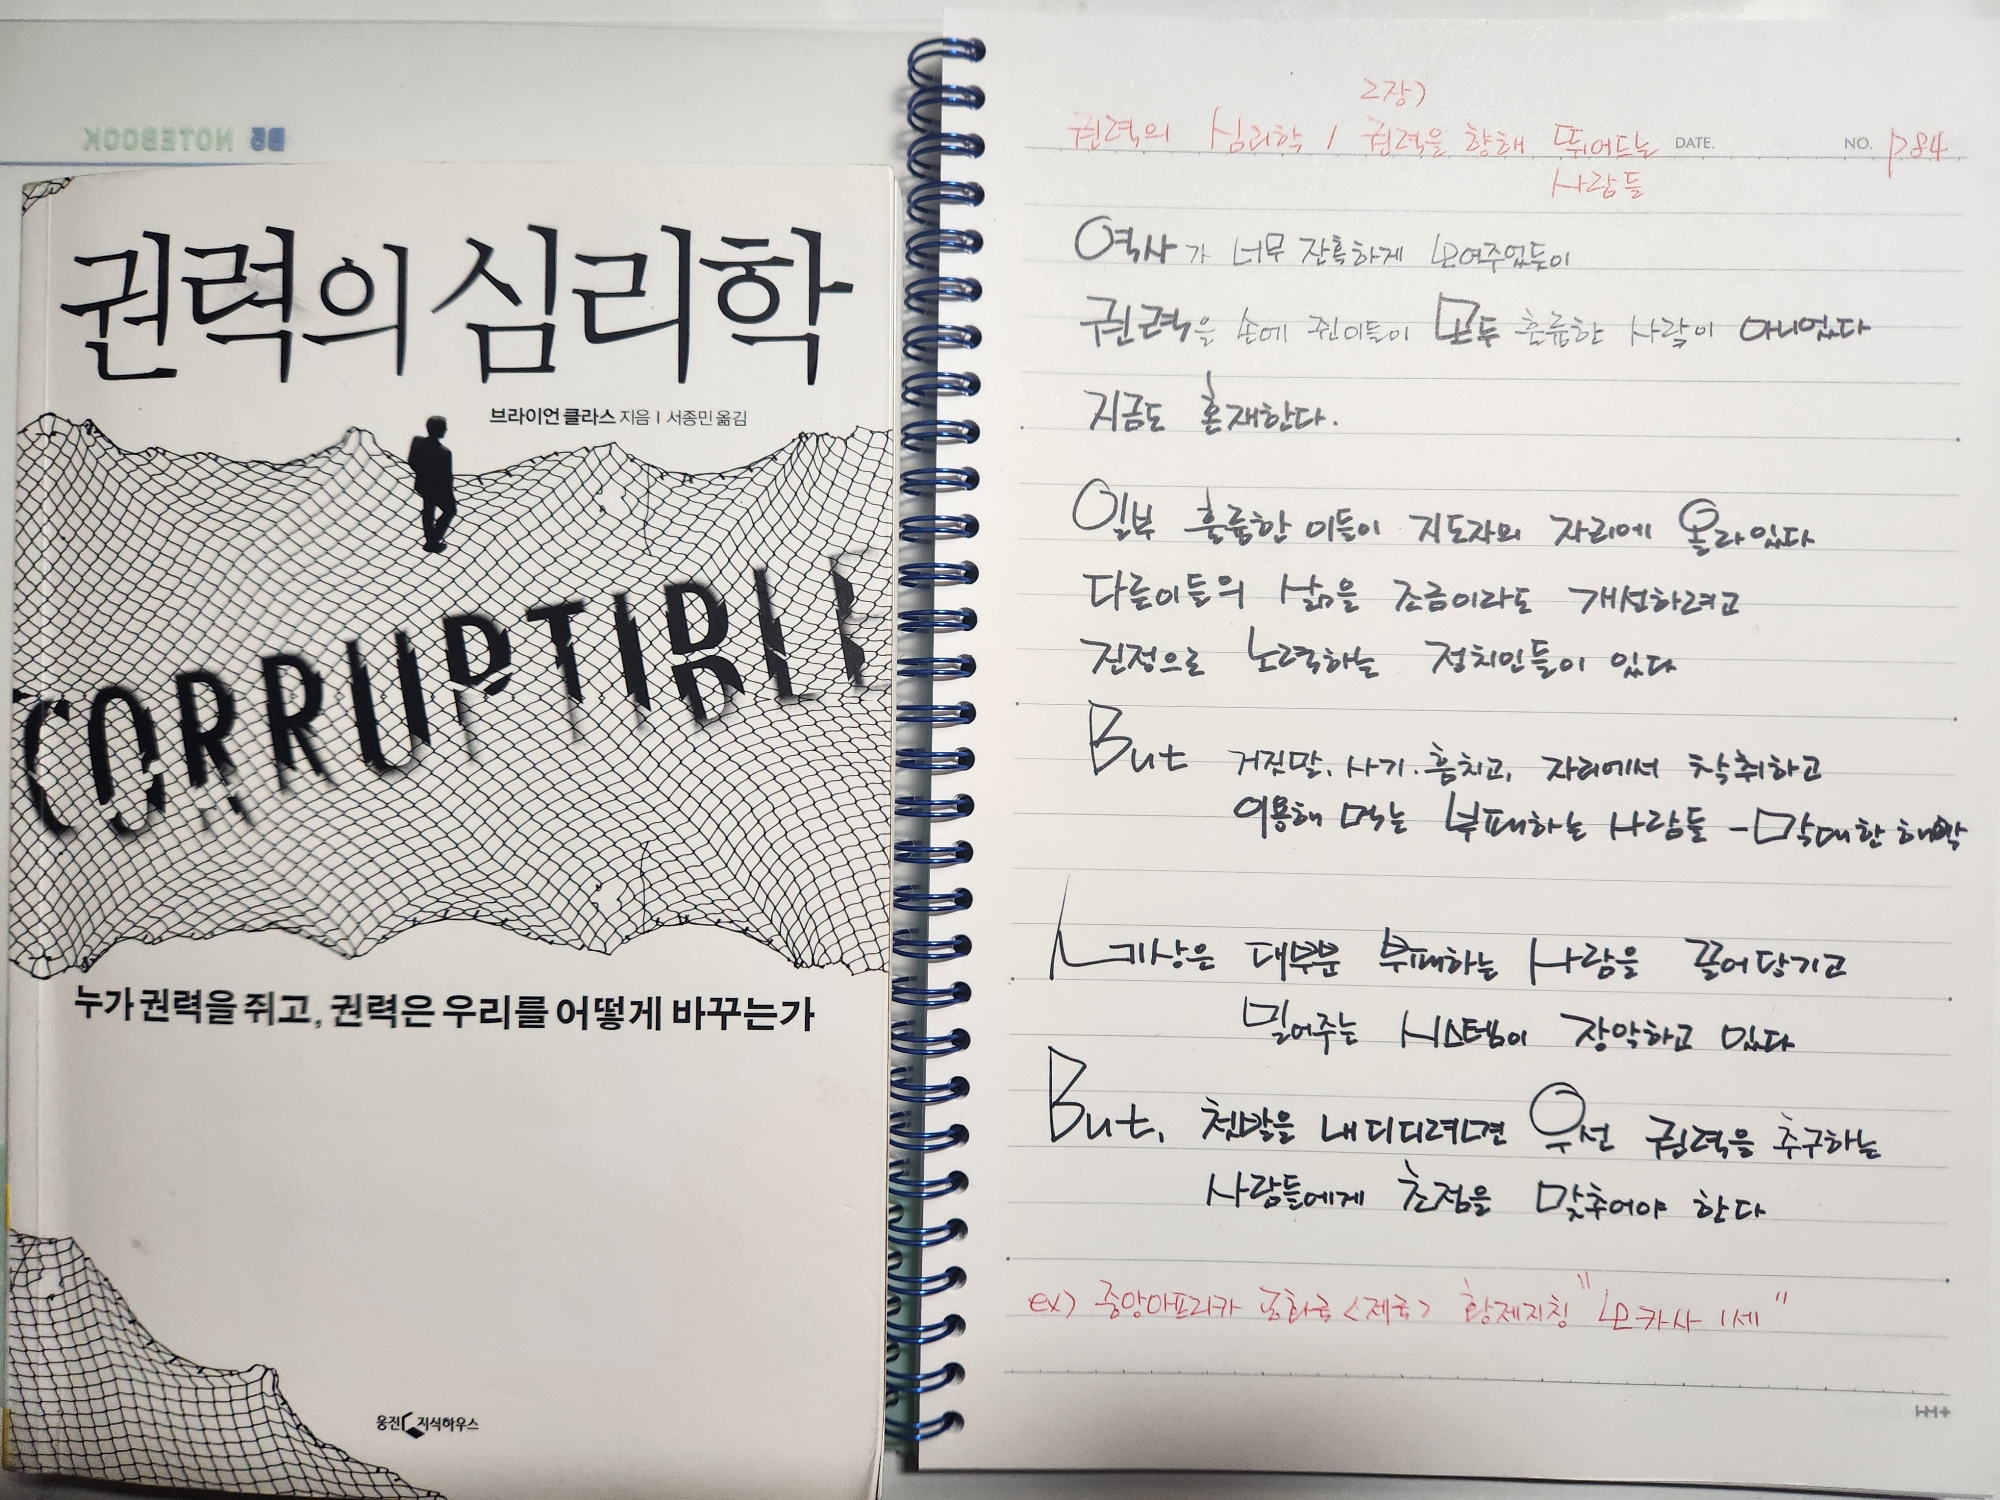 B5 NOTEBOOK
권력의 심리학
브라이언 클라스 지음 | 서종민 옮김
CORRUPTIBLE
누가 권력을 쥐고, 권력은 우리를 어떻게 바꾸는가
웅진 지식하우스
2장)
권력의 심리학 / 권력을 향해 뛰어드는 DATE. NO. p284
사람들
역사가 너무 잔혹하게 보여주었들이
권력은 손에 쥔이들이 모두 훌륭한 사람이 아니었다
지금도 혼재한다.
일부 훌륭한 이들이 지도자의 자리에 올라있다
다른이들의 삶을 조금이라도 개선하려고
진정으로 노력하는 정치인들이 있다
But 거짓말, 사기, 훔치고, 자리에서 착취하고
이용해 먹는 부패하는 사람들 - 막대한 해악
세상은 대부분 부패하는 사람을 끌어당기고
밀어주는 시스템이 장악하고 있다
But, 첫발을 내디디려면 우선 권력을 추구하는
사람들에게 초점을 맞추어야 한다
ex) 중앙아프리카 공화국 <제국> 황제지칭 "보카사 1세"